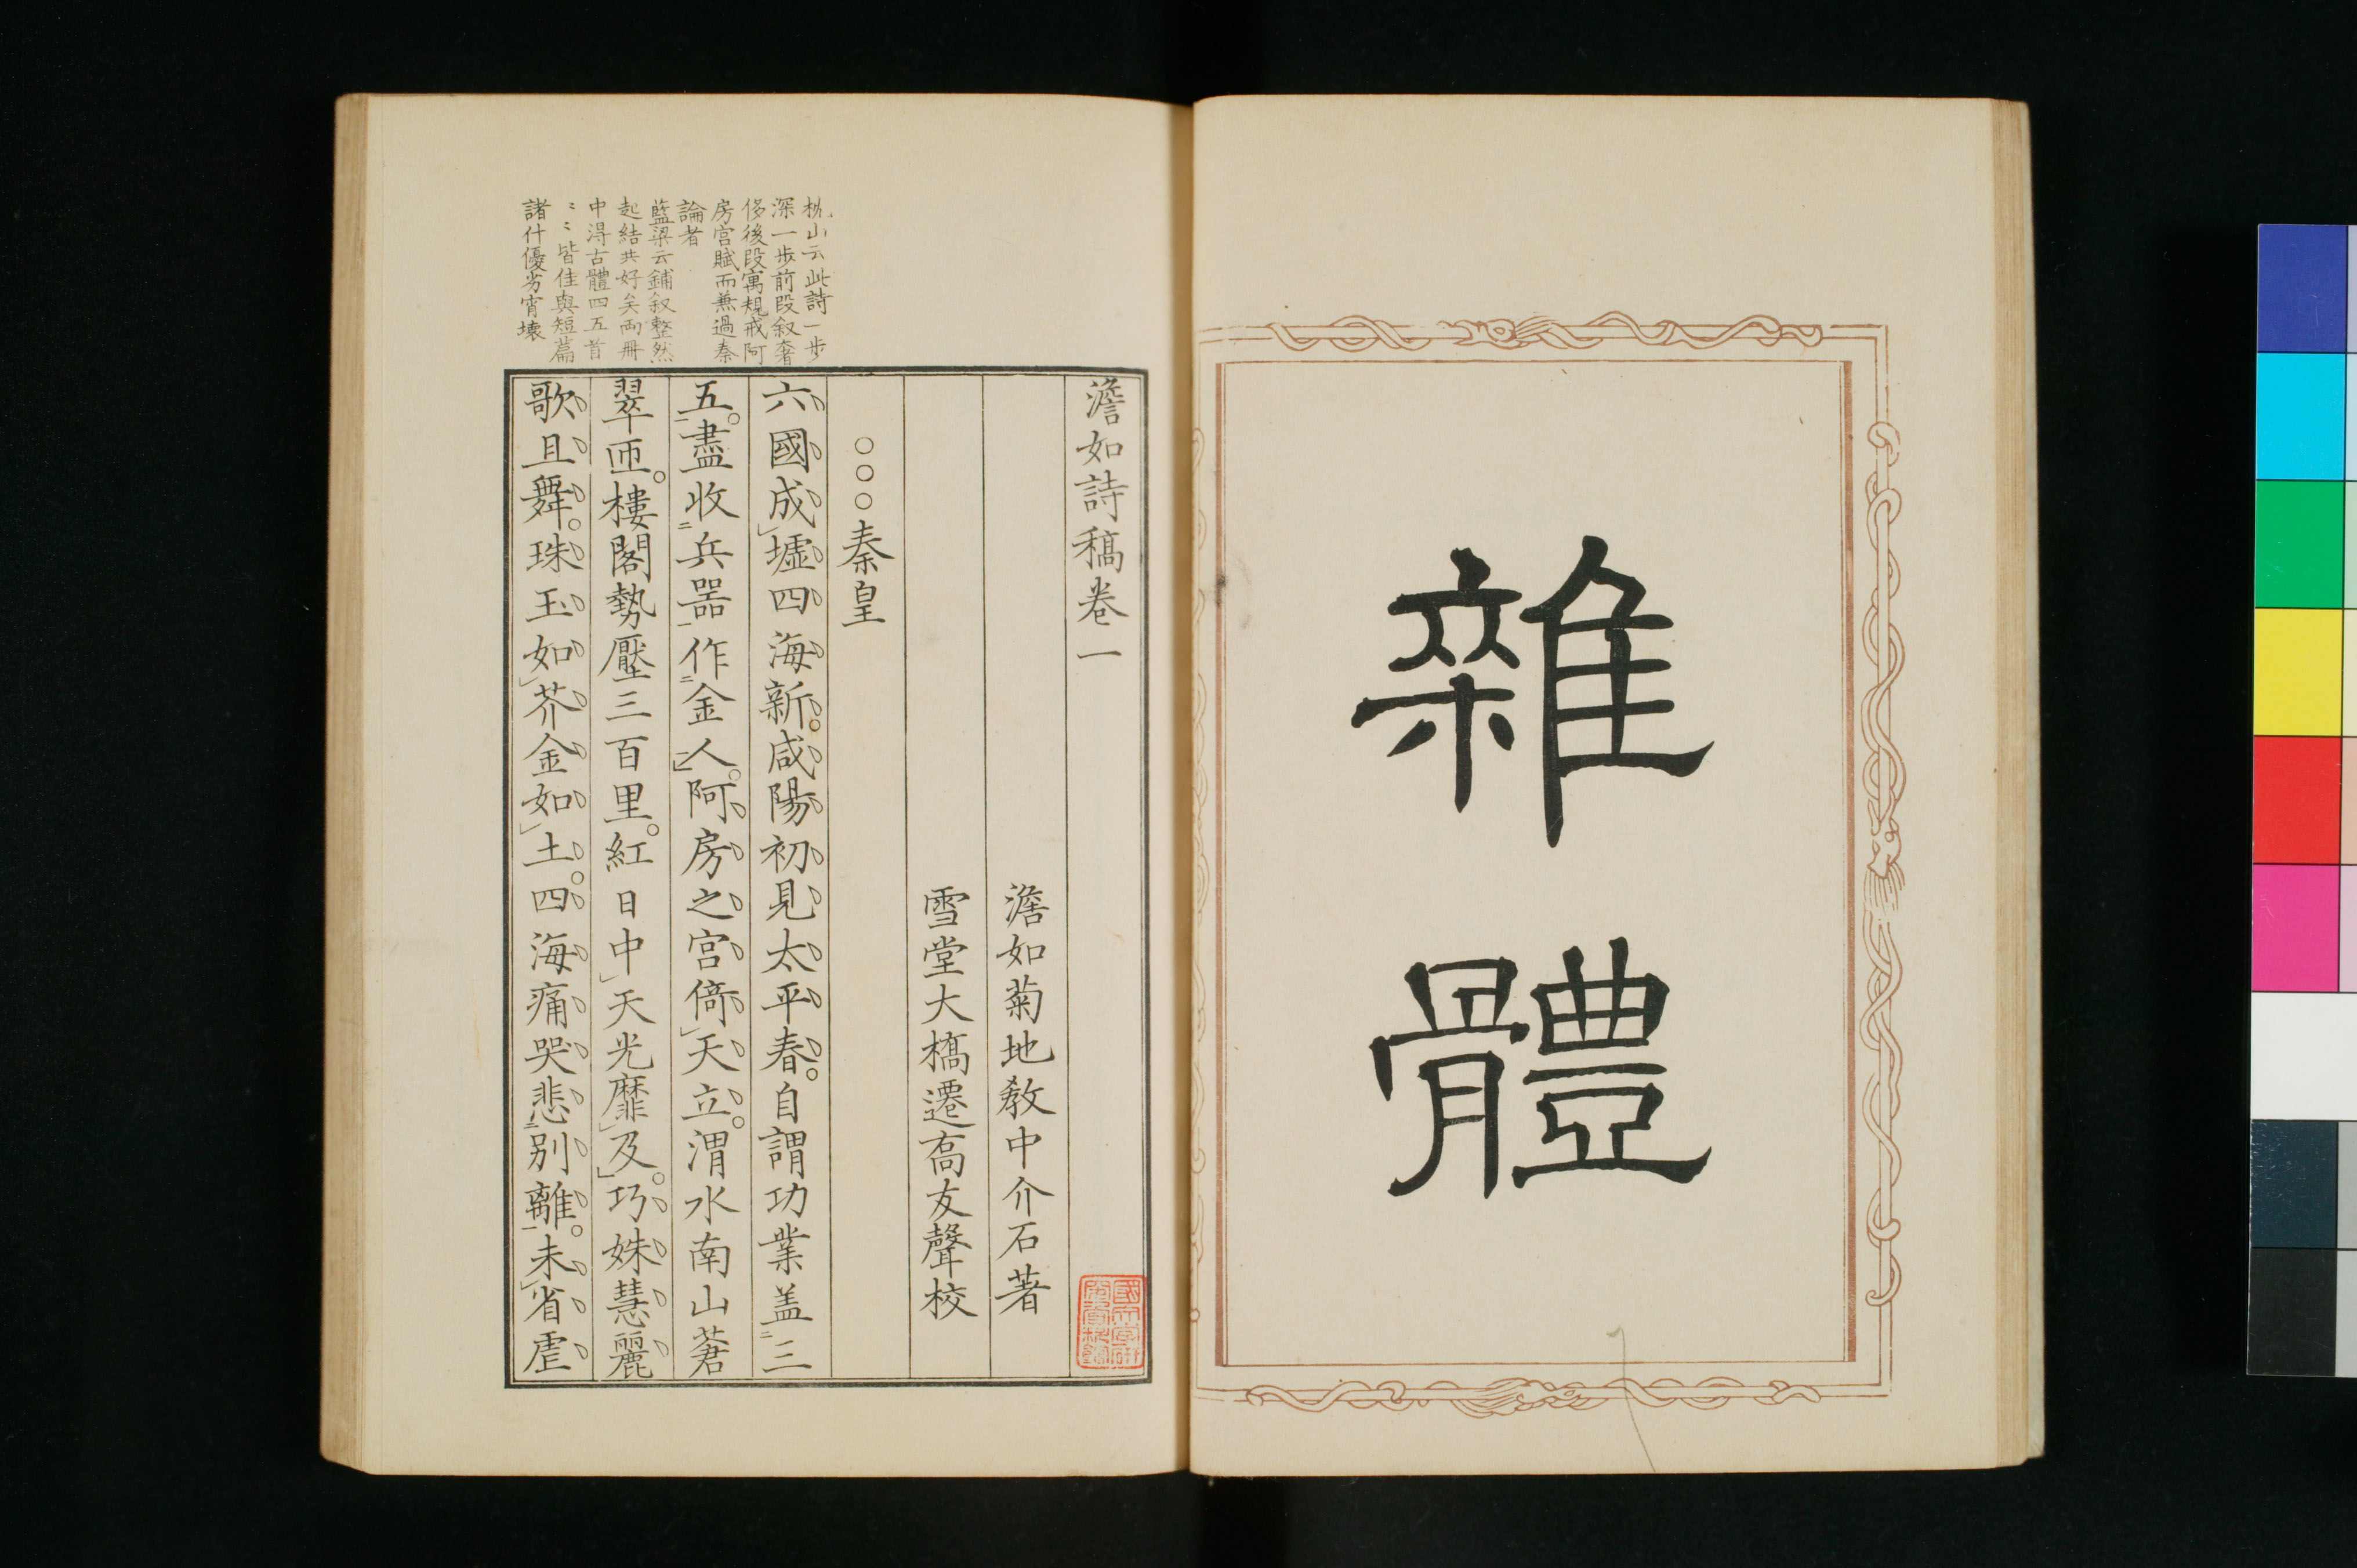 雜體
澹如詩稿卷一
澹如菊地教中介石著
雪堂大橋遷高友聲校
○○○秦皇
六國成墟四海新。咸陽初見太平春。自謂功業盖三
五。盡收兵器作金人。阿房之宮倚天立。渭水南山蒼
翠匝。樓閣勢壓三百里。紅日中天光靡及。巧姝慧麗
歌且舞。珠玉如芥金如土。四海痛哭悲別離。未省虐
枕山云此詩一步
深一步前段叙奢
侈後段寓規戒阿
房宮賦而兼過秦
論者
藍梁云鋪叙整然
起結共好矣兩冊
中淂古體四五首
〻〻皆佳與短篇
諸什優劣霄壤